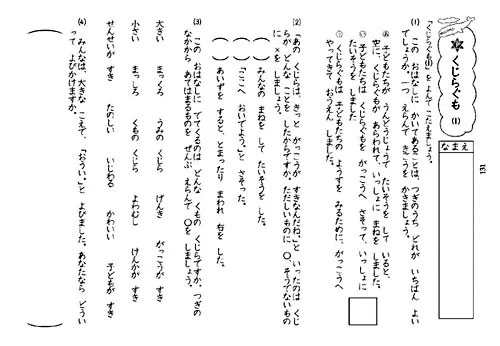 くじらぐも (1)
なまえ
131
「くじらぐも(1)」を よんで こたえましょう。
(1) この おはなしに かいてあることは、つぎのうち どれが いちばん よい
でしょうか。一つ えらんで きごうを かきましょう。
あ 子どもたちが うんどうじょうで たいそうを して いると、
空に、くじらぐもが あらわれて、いっしょに まねを しました。
い 子どもたちは くじらぐもを がっこうへ さそって、いっしょに
たいそうを しました
う くじらぐもは 子どもたちの ようすを みるために、がっこうへ
やってきて おうえん しました。
(2) 「あの くじらは、きっと がっこうが すきなんだね。」と いったのは くじ
らが どんな ことを したからですか。ただしいものに ○、そうでないもの
に ×を しましょう。
( ) みんなの まねを して たいそうを した。
( ) 「ここへ おいでよう。」と さそった。
( ) あいずを すると、とまったり まわれ 右を した。
(3) この おはなしに でてくるのは どんな くもの くじらですか。つぎの
なかから あてはまるものを ぜんぶ えらんで ○を しましょう。
大きい まっくろ うみの くじら げんき がっこうが すき
小さい まっしろ くもの くじら よわむし けんかが すき
せんせいが すき たのしい いじわる かわいい 子どもが すき
(4) みんなは、大きな こえで、「おうい。」と よびました。あなたなら どうい
って よびかけますか。